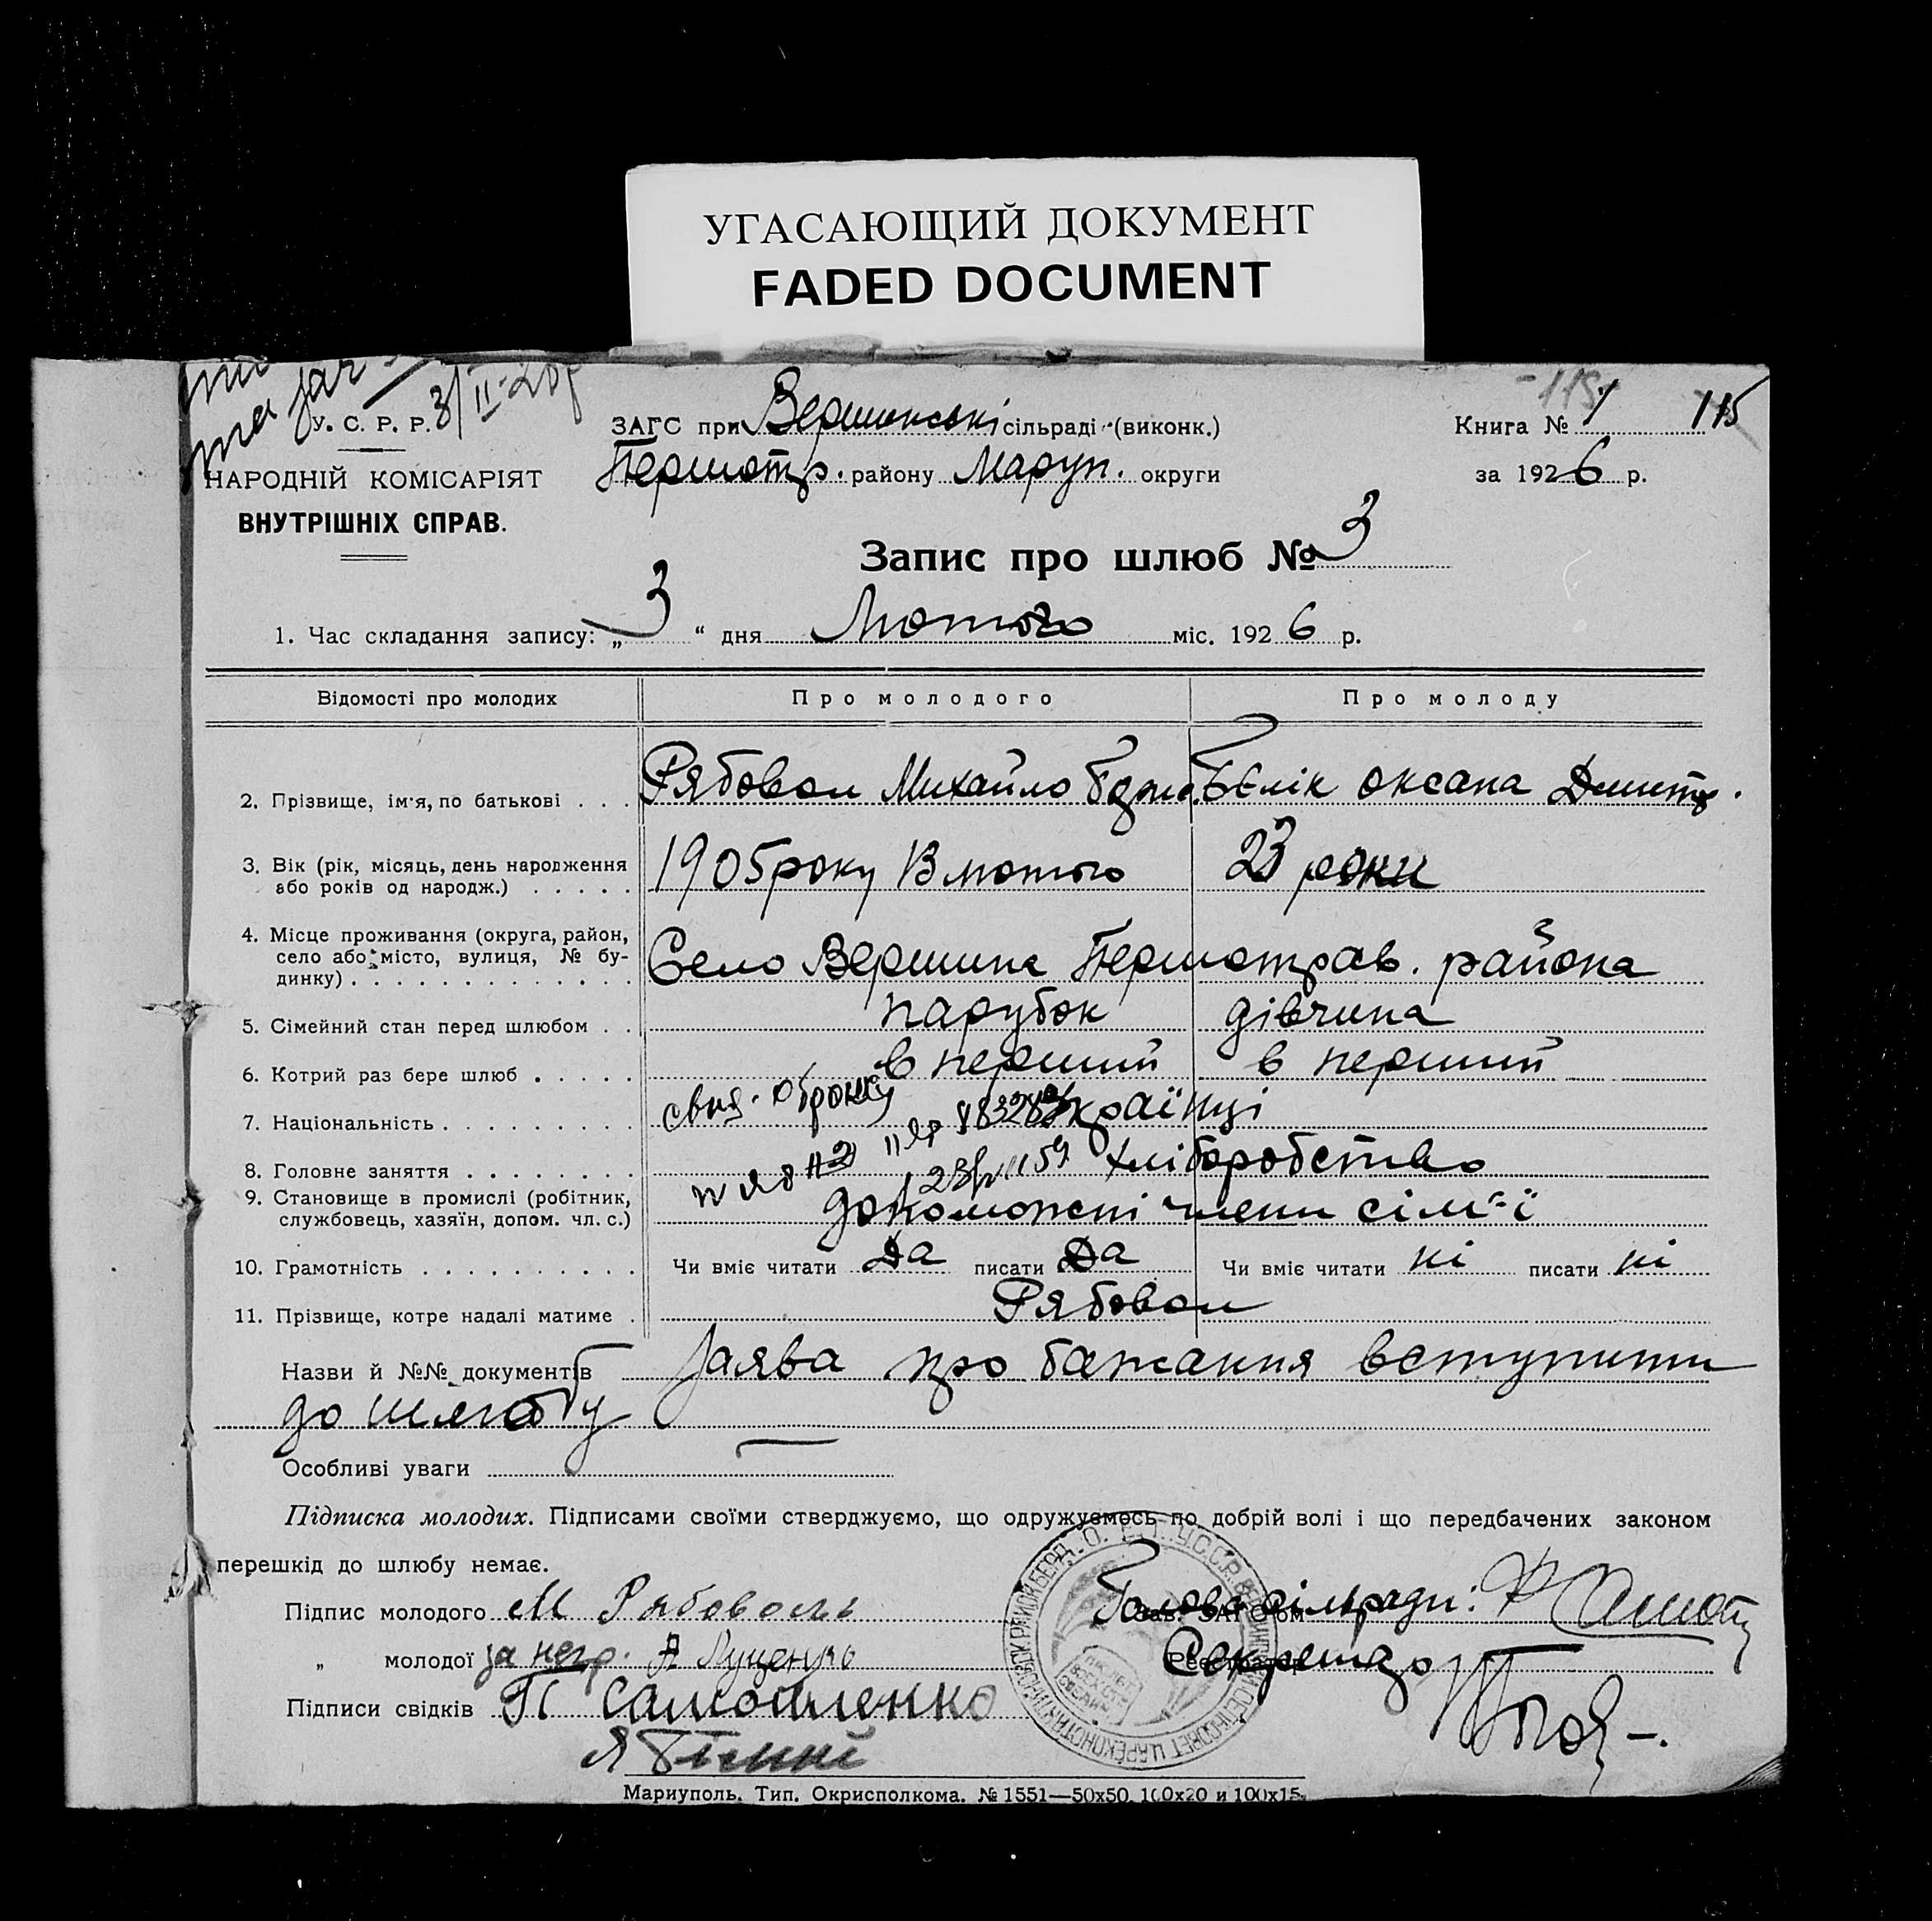 УГАСАЮЩИЙ ДОКУМЕНТ
FADED DOCUMENT
У. С. Р. Р.
НАРОДНІЙ КОМІСАРІЯТ
ВНУТРІШНІХ СПРАВ.
ЗАГС при Вершинські сільраді (виконк.)
Першотр. району Маруп. округи
Книга № 1 115
за 1926 р.
Запис про шлюб № 3
1. Час складання запису: „3“ дня Лютого міс. 1926 р.
Відомості про молодих Про молодого Про молоду
2. Прізвище, ім'я, по батькові . . . Рябовол Михайло Бєлік Оксана Дмитр.
3. Вік (рік, місяць, день народження
або років од народж.) . . . . . 1905 року 13 лютого 23 роки
4. Місце проживання (округа, район,
село або місто, вулиця, № бу-
динку) . . . . . . . . . . . . . Село Вершина Першотрав. района
5. Сімейний стан перед шлюбом . . парубок дівчина
6. Котрий раз бере шлюб . . . . . в перший в перший
7. Національність . . . . . . . . . українці
8. Головне заняття . . . . . . . . хліборобство
9. Становище в промислі (робітник,
службовець, хазяїн, допом. чл. с.) допоможні члени сім'ї
10. Грамотність . . . . . . . . . . Чи вміє читати Да писати Да Чи вміє читати ні писати ні
11. Прізвище, котре надалі матиме . Рябовол
Назви й №№ документів Заява про бажання вступити
до шлюбу
Особливі уваги —
Підписка молодих. Підписами своїми стверджуємо, що одружуємось по добрій волі і що передбачених законом
перешкід до шлюбу немає.
Підпис молодого М Рябоволь Голова сільради:
„ молодої за негр. А Луценко Секретар
Підписи свідків П Самойленко
Я Білий
Мариуполь. Тип. Окрисполкома. № 1551—50x50, 100x20 и 100x15.